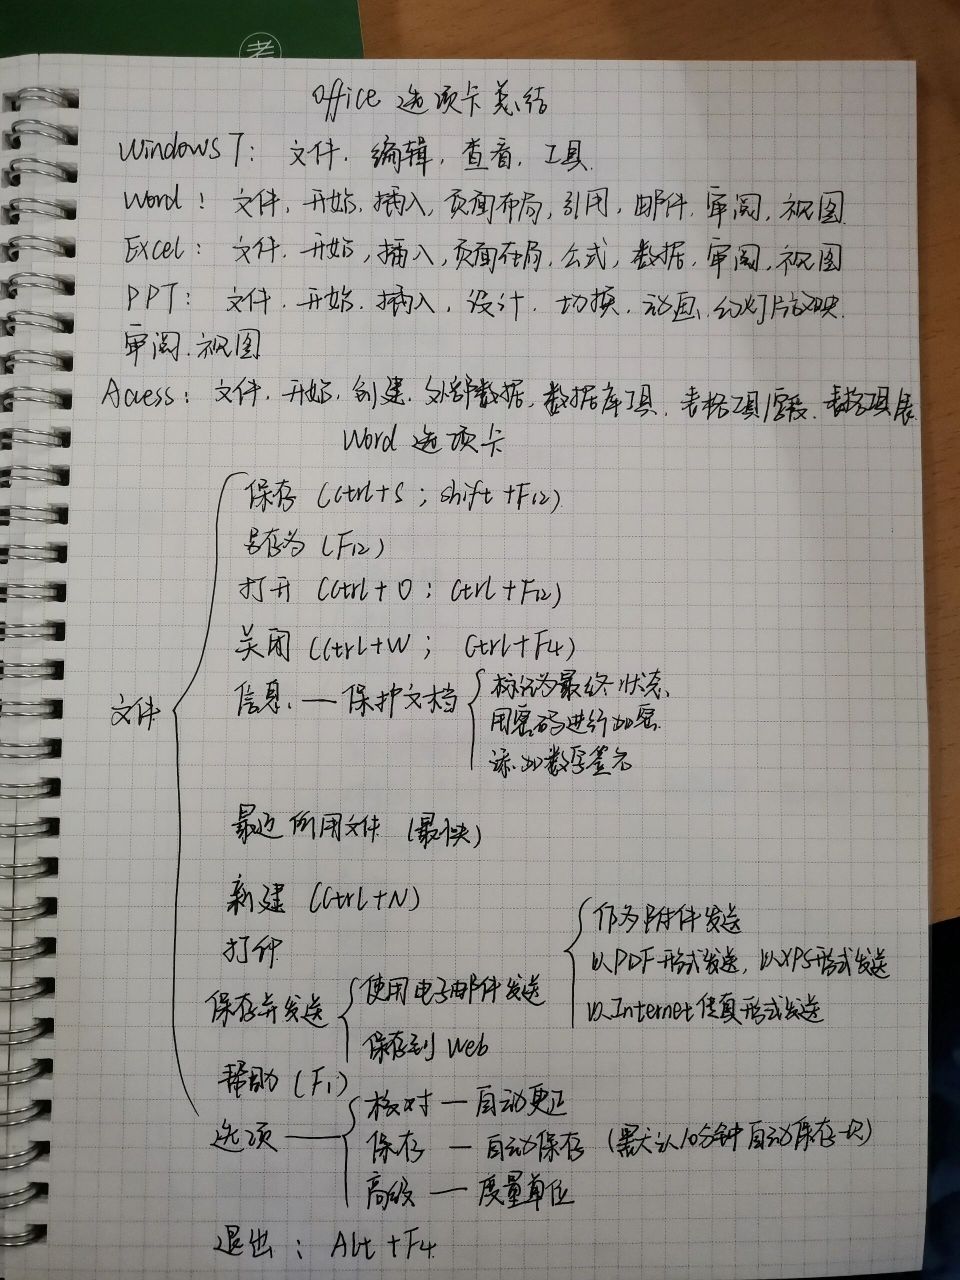 考
Office 选项卡总结
Windows 7: 文件. 编辑, 查看, 工具.
Word: 文件. 开始. 插入, 页面布局, 引用, 邮件. 审阅, 视图
Excel: 文件. 开始, 插入, 页面布局, 公式, 数据, 审阅, 视图
PPT: 文件. 开始. 插入, 设计. 切换. 动画. 幻灯片放映.
审阅. 视图
Access: 文件. 开始. 创建. 外部数据, 数据库工具. 表格工具/字段. 表格工具/表
Word 选项卡
保存 (Ctrl+S; Shift+F12)
另存为 (F12)
打开 (Ctrl+O; Ctrl+F12)
关闭 (Ctrl+W; Ctrl+F4)
信息 — 保护文档
标记为最终状态
用密码进行加密
添加数字签名
文件
最近所用文件 (最快)
新建 (Ctrl+N)
打印
保存并发送
使用电子邮件发送
作为附件发送
以PDF形式发送, 以XPS形式发送
以Internet传真形式发送
保存到 Web
帮助 (F1)
选项
校对 — 自动更正
保存 — 自动保存 (默认10分钟自动保存一次)
高级 — 度量单位
退出: Alt+F4